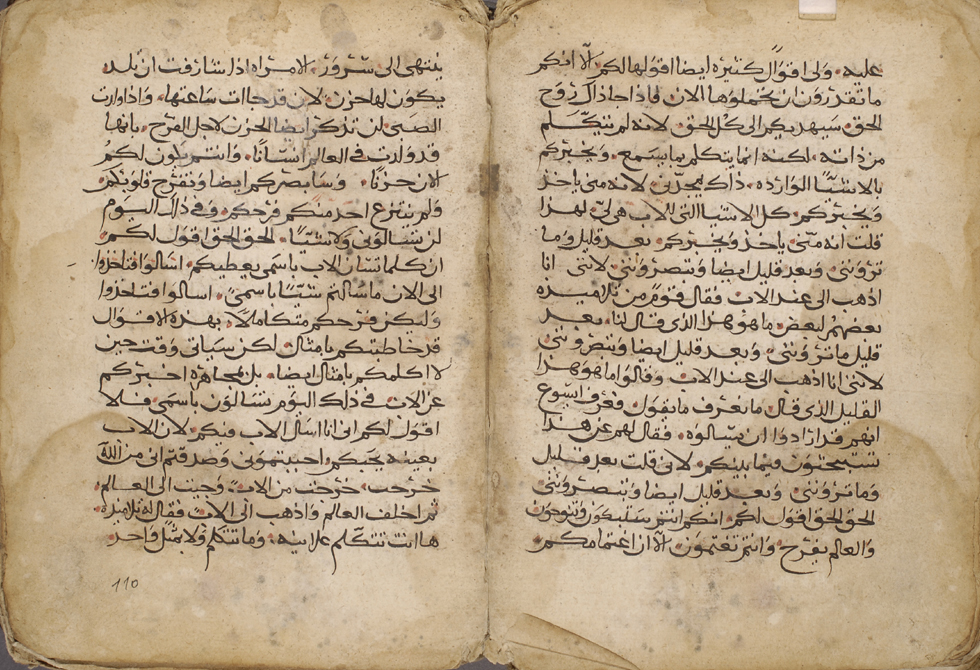 عليه. ولى اقوال كثيره ايضا اقولها لكم. الا انكم
ما تقدرون ان تحملوها الان. فاذا جا ذاك روح
الحق. سيهديكم الى كل الحق. لانه لم يتكلم
من ذاته. لكنه انما يتكلم بما يسمع. ويخبركم
بالاشيا الوارده. ذاك يمجدنى. لانه منى ياخذ
ويخبركم. كل الاشيا التى للاب هى لى. لهذا
قلت انه منى ياخذ ويخبركم. بعد قليل وما
ترونى. وبعد قليل ايضا وتبصروننى. لاننى انا
اذهب الى عند الاب. فقال قوم من تلاميذه
بعضهم لبعض. ما هو هذا الذى قال لنا. بعد
قليل ما ترونى. وبعد قليل ايضا وتبصروننى
لاننى انا اذهب الى عند الاب. وقالوا ما هو هذا
القليل الذى قال. ما نعرف ما يقول. فعرف ايسوع
انهم قد ارادوا ان يسالوه. فقال لهم عن هذا
تبحثون فيما بينكم. لانى قلت بعد قليل
وما ترونى. وبعد قليل ايضا وتبصروننى
الحق الحق اقول لكم. انكم انتم ستبكون وتنوحون
والعالم يفرح. وانتم تغتمون. الا ان اغتمامكم
ينتهى الى سرور. الامراه اذا شارفت ان تلد
يكون لها حزن. لان قد جات ساعتها. واذا وارت
الصبى. لن تذكر ايضا الحزن لاجل الفرح. بانها
قد ولدت فى العالم انسانا. وانتم يكون لكم
الان حزنا. وسابصركم ايضا وتفرح قلوبكم
ولم ينتزع احد منكم فرحكم. وفى ذلك اليوم
لن تسالونى ولا شيا. الحق الحق اقول لكم.
ان كلما تسالن الاب باسمى يعطيكم. اسالوا فتاخذوا
الى الان ما سالتم شيا باسمى. اسالوا فتاخذوا
وليكن فرحكم متكاملا. بهذه الاقوال
قد خاطبتكم بامثال. لكن سياتى وقت حين
لا اكلمكم بامثال ايضا. بل بمجاهره اخبركم
عن الاب. فى ذلك اليوم تسالون باسمى. فلا
اقول لكم انى انا اسال الاب فيكم. لان الاب
بعينه يحبكم. واحببتمونى وصدقتم انى من الله
خرجت. خرجت من الاب. وجيت الى العالم.
ثم اخلف العالم واذهب الى الاب. فقال له تلاميذه
ها انت تتكلم علانيه. وما تتكلم ولا بمثل واحد
110